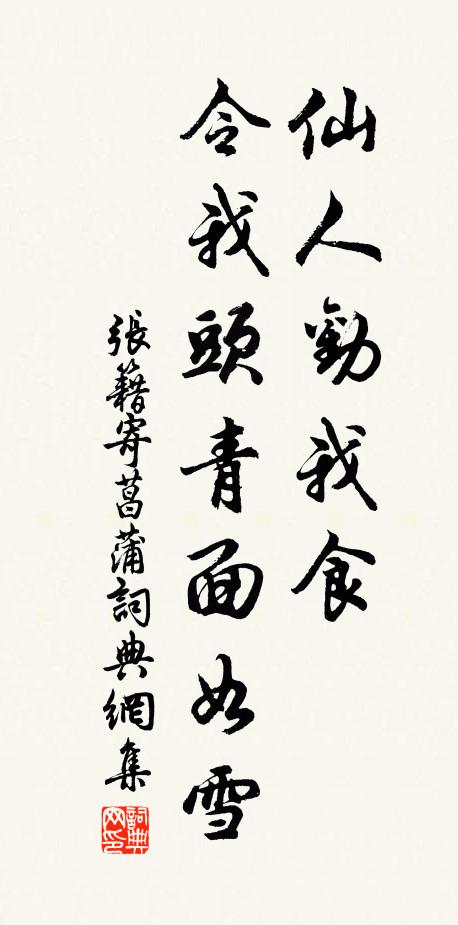 仙人勸我食
令我頭青面如雪
張籍寄菖蒲詞典網集
詞典網印